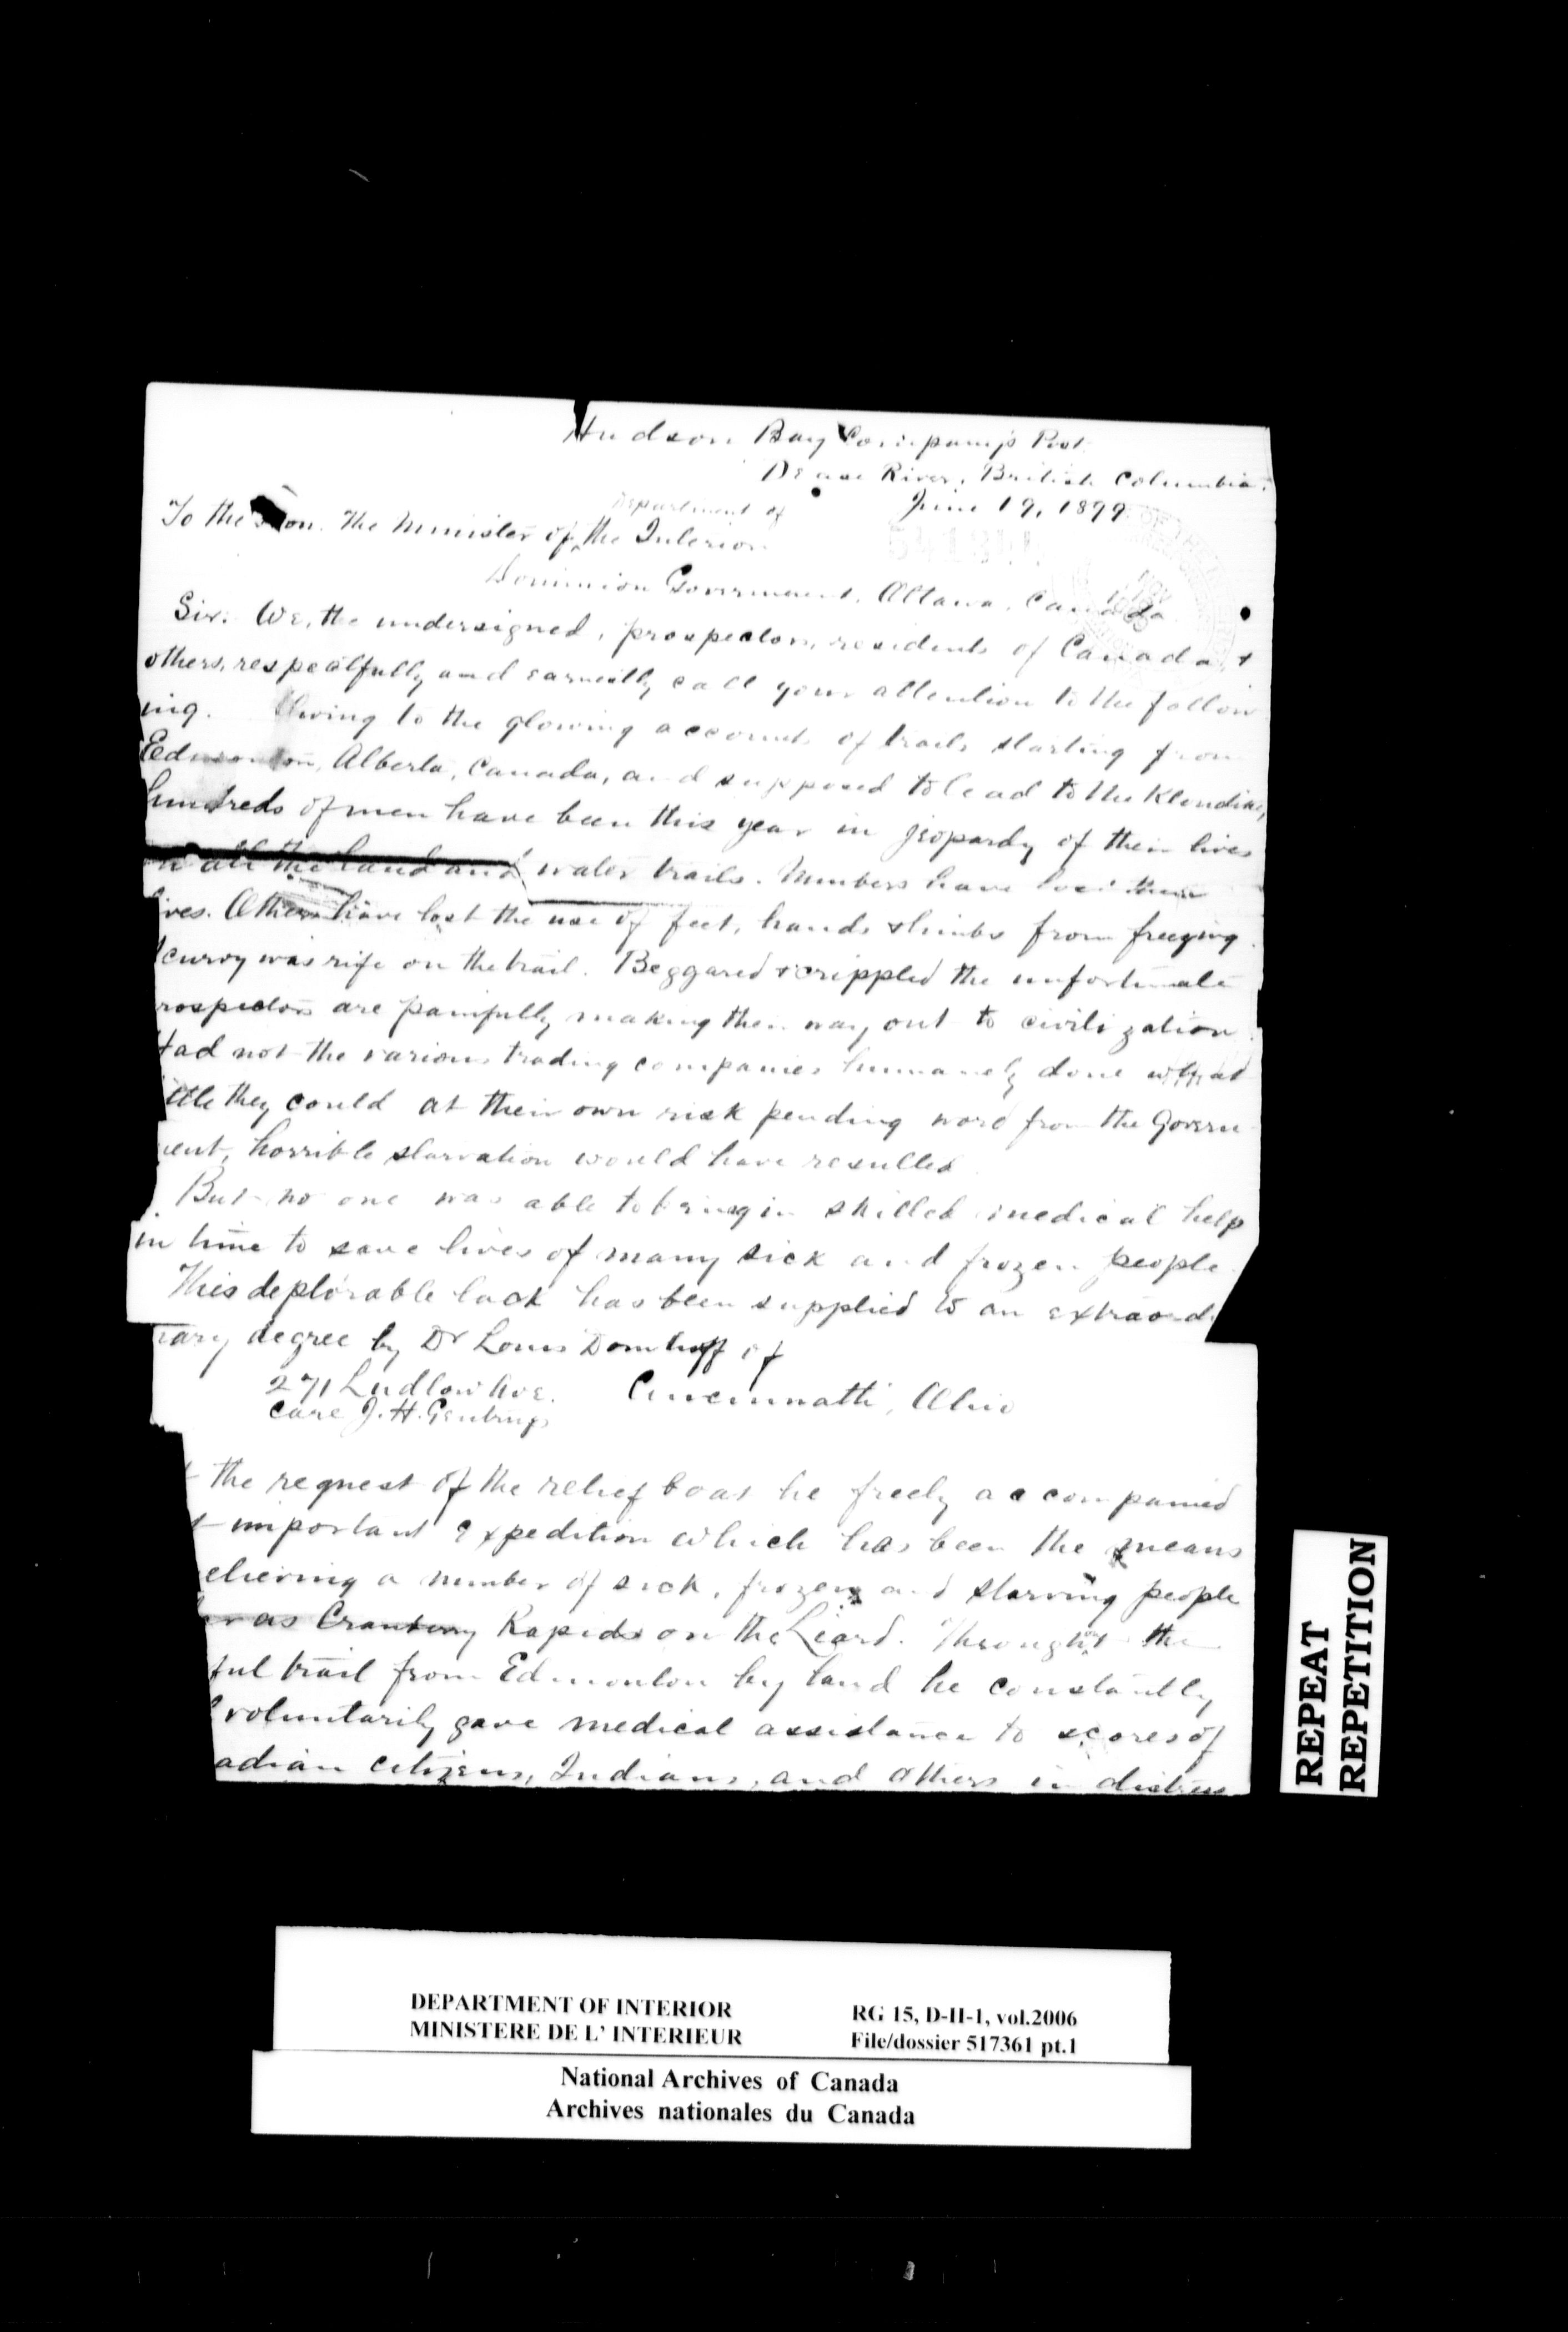 Hudson Bay Company's Post.
Dease River, British Columbia.
June 19, 1899
Department of
To the Hon. The Minister of the Interior
Dominion Government, Ottawa, Canada
Sir: We, the undersigned, prospectors, residents of Canada, +
others, respectfully and earnestly call your attention to the follow
ing. Owing to the glowing accounts of trails starting from
Edmonton, Alberta, Canada, and supposed to lead to the Klondike,
hundreds of men have been this year in jeopardy of their lives
on all the land and water trails. Numbers have lost their
ives. Others have lost the use of feet, hands & limbs from freezing.
curvy was rife on the trail. Beggared & crippled the unfortunate
rospectors are painfully making their way out to civilization.
Had not the various trading companies humanely done what
ittle they could at their own risk pending word from the Govern
ent, horrible starvation would have resulted.
But no one was able to bring in skilled medical help
in time to save lives of many sick and frozen people.
This deplorable lack has been supplied to an extraordi
nary degree by Dr Louis Domhoff of
271 Ludlow Ave. Cincinnatti, Ohio
care J. H. Gentrup
the request of the relief boat he freely accompanied
t important expedition which has been the means
elieving a number of sick, frozen and starving people
as Cranberry Rapids on the Liard. Throughout the
ful trail from Edmonton by land he constantly
voluntarily gave medical assistance to scores of
adian citizens, Indians, and others in distress
REPEAT
REPETITION
DEPARTMENT OF INTERIOR RG 15, D-II-1, vol.2006
MINISTERE DE L' INTERIEUR File/dossier 517361 pt.1
National Archives of Canada
Archives nationales du Canada